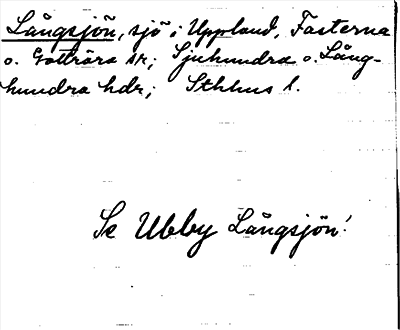 Långsjön, sjö i Uppland, Fasterna
o. Gottröra sn; Sjuhundra o. Lång-
hundra hdr; Sthlms l.
Se Ubby Långsjön!